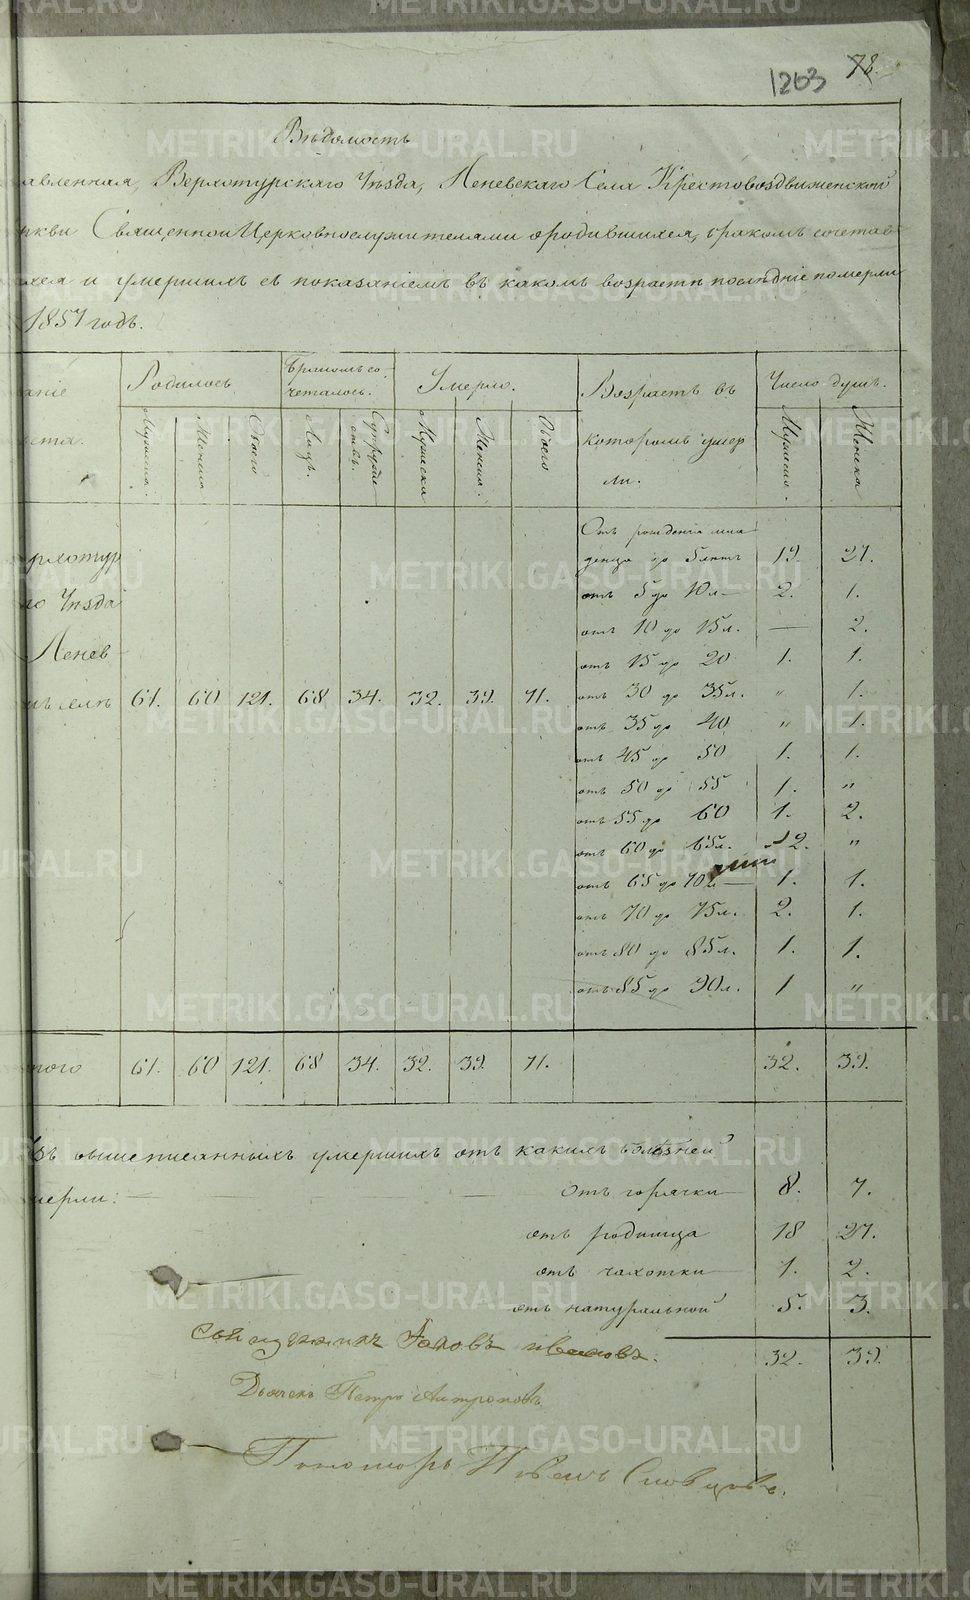 1263 78.
Вѣдомость
авленная, Верхотурскаго Уѣзда, Леневскаго Села Крестовоздвиженской
ркви Священно и Церковнослужителями о родившихся, бракомъ сочетав
хся и умершихъ съ показаніемъ въ какомъ возрастѣ послѣдніе померли
1857 годъ.
аніе Родилось Бракомъ со- Умерло. Возрастъ въ Число душъ.
четалось.
ста. Мужеска. Женска Обоего Лицъ. Супруже
ствъ. Мужеска Женска. Обоего которомъ умер Мужеска. Женска
ли.
Отъ рожденія мла
рхотур денца до 5 лѣтъ 19. 27.
го Уѣзда отъ 5 до 10 л— 2. 1.
отъ 10 до 15 л. — 2.
Ленев отъ 15 до 20 1. 1.
мъ селѣ 61. 60 121. 68 34. 32. 39. 71. отъ 30 до 35 л. " 1.
отъ 35 до 40 " 1.
отъ 45 до 50 1. 1.
отъ 50 до 55 1. "
отъ 55 до 60 1. 2.
отъ 60 до 65 л. 2. "
отъ 65 до 70 л— 1. 1.
отъ 70 до 75 л. 2. 1.
отъ 80 до 85 л. 1. 1.
отъ 85 до 90 л. 1 "
того 61. 60 121. 68 34. 32. 39. 71. 32. 39.
Изъ вышеписанныхъ умершихъ отъ какихъ болѣзней
мерли: — отъ горячки— 8. 7.
отъ родимца 18 27.
отъ чахотки— 1. 2.
отъ натуральной 5. 3.
32. 39.
Священникъ Іаковъ Ивановъ.
Дьячекъ Петръ Антроповъ
Пономарь Павелъ Словцовъ.
METRIKI.GASO-URAL.RU